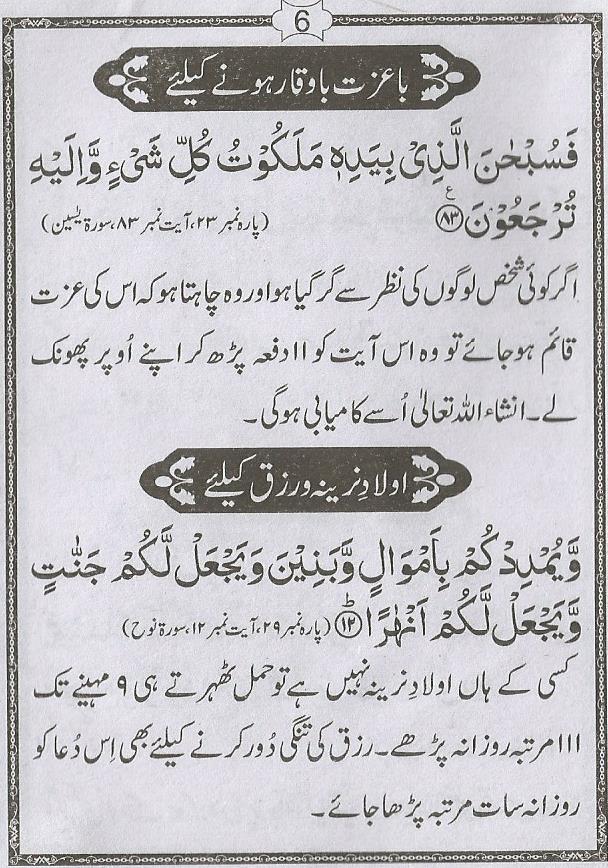 6
باعزت باوقار ہونے کیلئے
فَسُبْحٰنَ الَّذِیْ بِیَدِهٖ مَلَكُوْتُ كُلِّ شَیْءٍ وَّ اِلَیْهِ
تُرْجَعُوْنَ ﴿۸۳﴾ ع (پارہ نمبر ۲۳، آیت نمبر ۸۳، سورۃ یٰسین)
اگر کوئی شخص لوگوں کی نظر سے گر گیا ہو اور وہ چاہتا ہو کہ اس کی عزت
قائم ہو جائے تو وہ اس آیت کو ۱۱ دفعہ پڑھ کر اپنے اُوپر پھونک
لے۔ انشاء اللہ تعالیٰ اُسے کامیابی ہوگی۔
اولادِ نرینہ ورزق کیلئے
وَّیُمْدِدْكُمْ بِاَمْوَالٍ وَّبَنِیْنَ وَیَجْعَلْ لَّكُمْ جَنّٰتٍ
وَّیَجْعَلْ لَّكُمْ اَنْهٰرًا ﴿۱۲﴾ ط (پارہ نمبر ۲۹، آیت نمبر ۱۲، سورۃ نوح)
کسی کے ہاں اولادِ نرینہ نہیں ہے تو حمل ٹھہرتے ہی ۹ مہینے تک
۱۱۱ مرتبہ روزانہ پڑھے۔ رزق کی تنگی دُور کرنے کیلئے بھی اِس دُعا کو
روزانہ سات مرتبہ پڑھا جائے۔